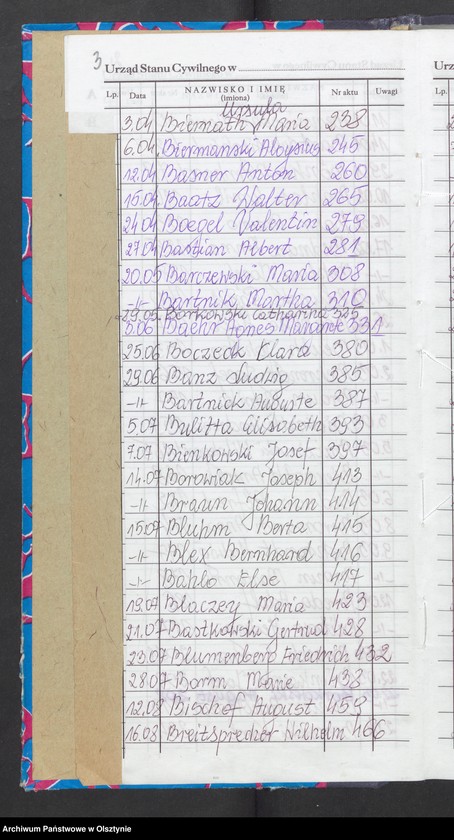 3
Urząd Stanu Cywilnego w
Urz
Lp. Data NAZWISKO I IMIĘ (imiona) Nr aktu Uwagi
Lp.
Urszula
3.04 Biernath Maria 238
6.04 Biermanski Aloysius 245
12.04 Basner Anton 260
15.04 Baatz Walter 265
24.04 Boegel Valentin 279
27.04 Bastian Albert 281
20.05 Barczewski Maria 308
-||- Bartnik Martha 310
29.05 Borkowski Catharina 325
5.06 Baehr Agnes 331
25.06 Boczeck Klara 380
29.06 Banz 385
-||- Bartnick Auguste 387
5.07 Bulitta Elisabeth 393
7.07 Bienkowski Josef 397
14.07 Borowiak Joseph 413
-||- Braun Johann 414
15.07 Bluhm Berta 415
-||- Blex Bernhard 416
-||- Bahlo Else 417
19.07 Blaczey Maria 423
21.07 Bastkowski Gertrud 428
23.07 Blumenberg Friedrich 432
28.07 Borm Marie 438
12.08 Bischof August 459
16.08 Breitsprecher Wilhelm 466
Archiwum Państwowe w Olsztynie